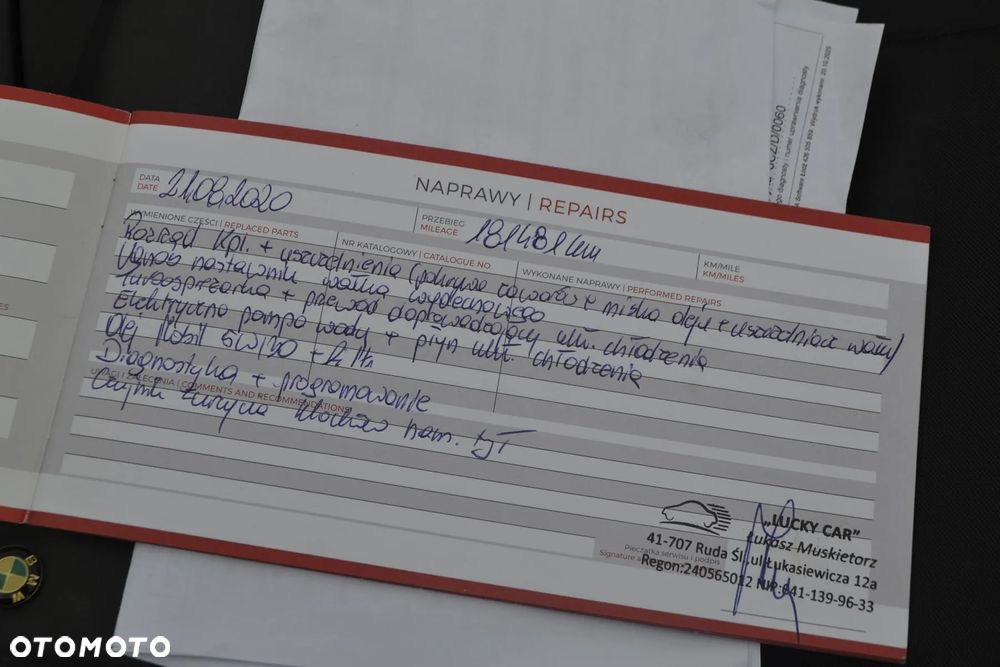 NAPRAWY | REPAIRS
DATA
DATE
21.08.2020
PRZEBIEG
MILEAGE
181481 km
KM/MILE
KM/MILES
WYMIENIONE CZĘŚCI | REPLACED PARTS
NR KATALOGOWY | CATALOGUE NO.
WYKONANE NAPRAWY | PERFORMED REPAIRS
Rozrząd kpl. + uszczelnienia (pokrywa zaworów + miska oleju + uszczelniacz wału)
nastawnik wałka wydechowego
Turbosprężarka + przewód doprowadzający ukł. chłodzenia
Elektryczna pompa wody + płyn ukł. chłodzenia
Olej Mobil 5W30 + filtr
Diagnostyka + programowanie
UWAGI I ZALECENIA | COMMENTS AND RECOMMENDATIONS
Czujnik zużycia klocków ham.
Pieczątka serwisu i podpis
Signature
"LUCKY CAR"
Łukasz Muskietorz
41-707 Ruda Śl.,ul Łukasiewicza 12a
Regon:240565012 NIP:641-139-96-33
BMW
OTOMOTO